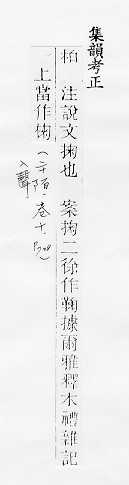 集韻考正
𣐩 注說文掬也 案掬二徐作鞠據爾雅釋木禮雜記
上當作椈(二十陌·卷十·
入聲